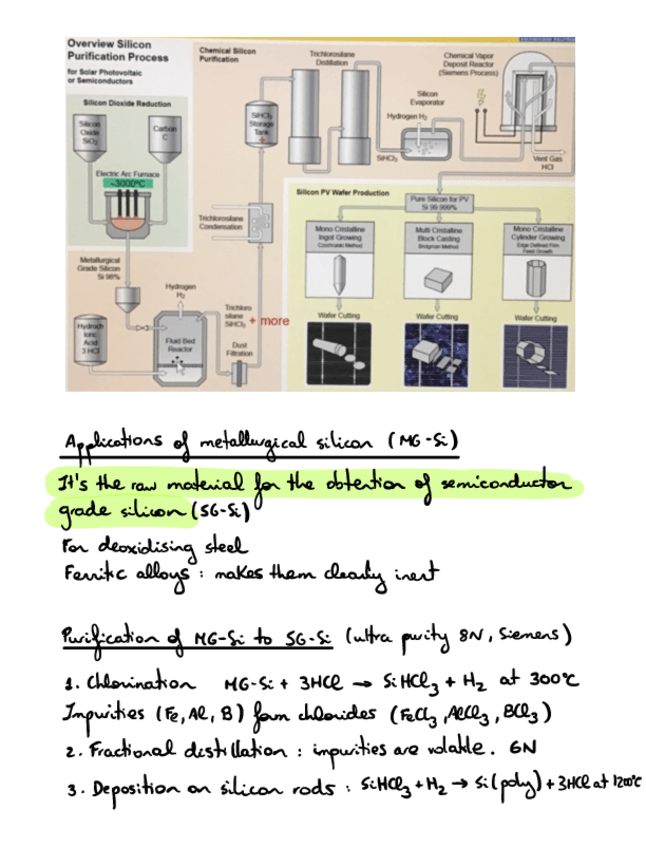 Overview Silicon
Purification Process
for Solar Photovoltaic
or Semiconductors
Silicon Dioxide Reduction
Silicon
Oxide
SiO₂
Carbon
C
Electric Arc Furnace
~3000°C
Metallurgical
Grade Silicon
Si 98%
Hydrogen
H₂
Hydrochloric
Acid
3 HCl
Fluid Bed
Reactor
Chemical Silicon
Purification
Trichlorosilane
Distillation
SiHCl₃
Storage
Tank
+
Trichlorosilane
Condensation
Trichloro
silane
SiHCl₃ + more
Dust
Filtration
Chemical Vapor
Deposit Reactor
(Siemens Process)
Silicon
Evaporator
Hydrogen H₂
SiHCl₃
Vent Gas
HCl
Silicon PV Wafer Production
Pure Silicon for PV
Si 99.999%
Mono Cristalline
Ingot Growing
Czochralski Method
Multi Cristalline
Block Casting
Bridgman Method
Mono Cristalline
Cylinder Growing
Edge Defined Film
Feed Growth
Wafer Cutting
Wafer Cutting
Wafer Cutting
Applications of metallurgical silicon (MG-Si)
It's the raw material for the obtention of semiconductor
grade silicon (SG-Si)
For deoxidising steel
Ferritic alloys : makes them clearly inert
Purification of MG-Si to SG-Si (ultra purity 8N, Siemens)
1. Chlorination MG-Si + 3HCl → SiHCl₃ + H₂ at 300°C
Impurities (Fe, Al, B) form chlorides (FeCl₃, AlCl₃, BCl₃)
2. Fractional distillation : impurities are volatile. 6N
3. Deposition on silicon rods : SiHCl₃ + H₂ → Si(poly) + 3HCl at 1200°C